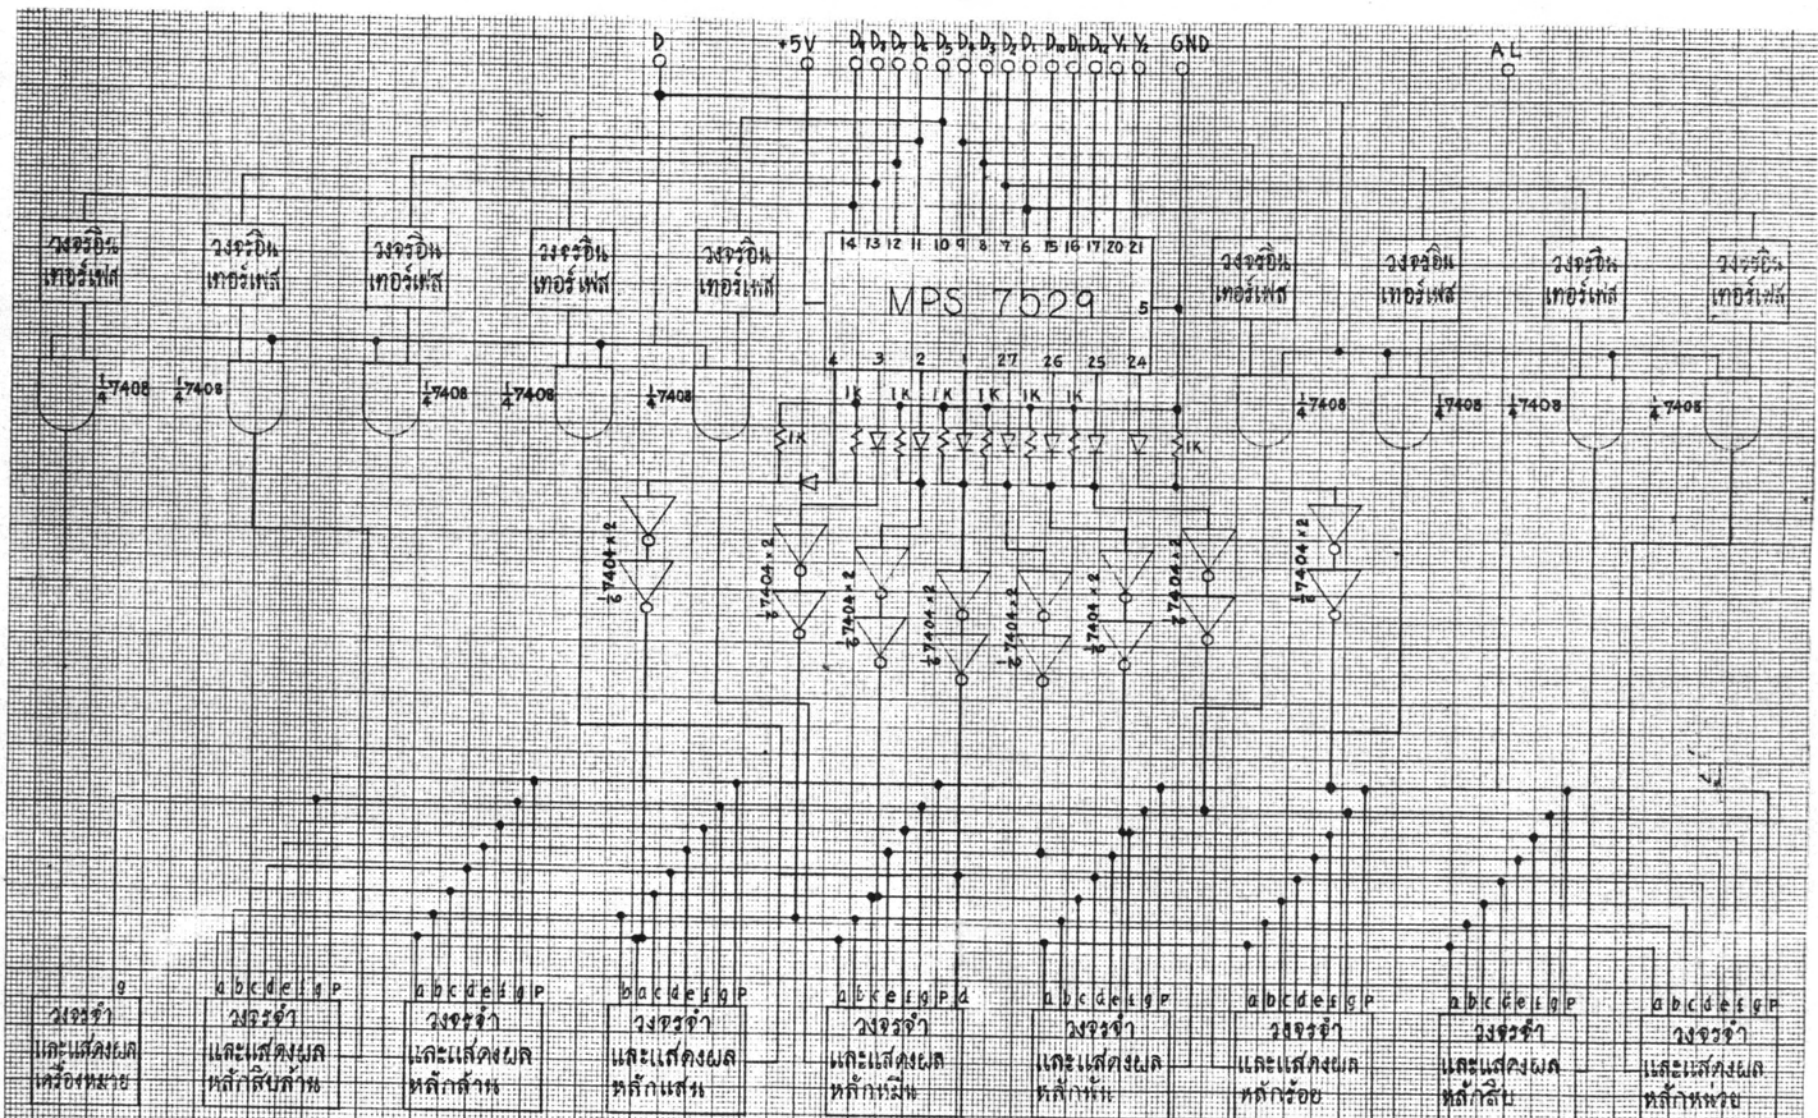 D +5V D₉ D₈ D₇ D₆ D₅ D₄ D₃ D₂ D₁ D₁₀ D₁₁ D₁₂ Y₁ Y₂ GND AL
วงจรอิน
เทอร์เฟส
วงจรอิน
เทอร์เฟส
วงจรอิน
เทอร์เฟส
วงจรอิน
เทอร์เฟส
วงจรอิน
เทอร์เฟส
14 13 12 11 10 9 8 7 6 15 16 17 20 21
MPS 7529
5
4 3 2 1 27 26 25 24
วงจรอิน
เทอร์เฟส
วงจรอิน
เทอร์เฟส
วงจรอิน
เทอร์เฟส
วงจรอิน
เทอร์เฟส
¼7408 ¼7408 ¼7408 ¼7408 ¼7408 ¼7408 ¼7408 ¼7408 ¼7408
1K 1K 1K 1K 1K 1K
1K 1K
⅙7404×2 ⅙7404×2 ⅙7404×2 ⅙7404×2 ⅙7404×2 ⅙7404×2 ⅙7404×2 ⅙7404×2
g
วงจรจำ
และแสดงผล
เครื่องหมาย
a b c d e f g P
วงจรจำ
และแสดงผล
หลักสิบล้าน
a b c d e f g P
วงจรจำ
และแสดงผล
หลักล้าน
b a c d e f g P
วงจรจำ
และแสดงผล
หลักแสน
a b c e f g P d
วงจรจำ
และแสดงผล
หลักหมื่น
a b c d e f g P
วงจรจำ
และแสดงผล
หลักพัน
a b c d e f g P
วงจรจำ
และแสดงผล
หลักร้อย
a b c d e f g P
วงจรจำ
และแสดงผล
หลักสิบ
a b c d e f g P
วงจรจำ
และแสดงผล
หลักหน่วย